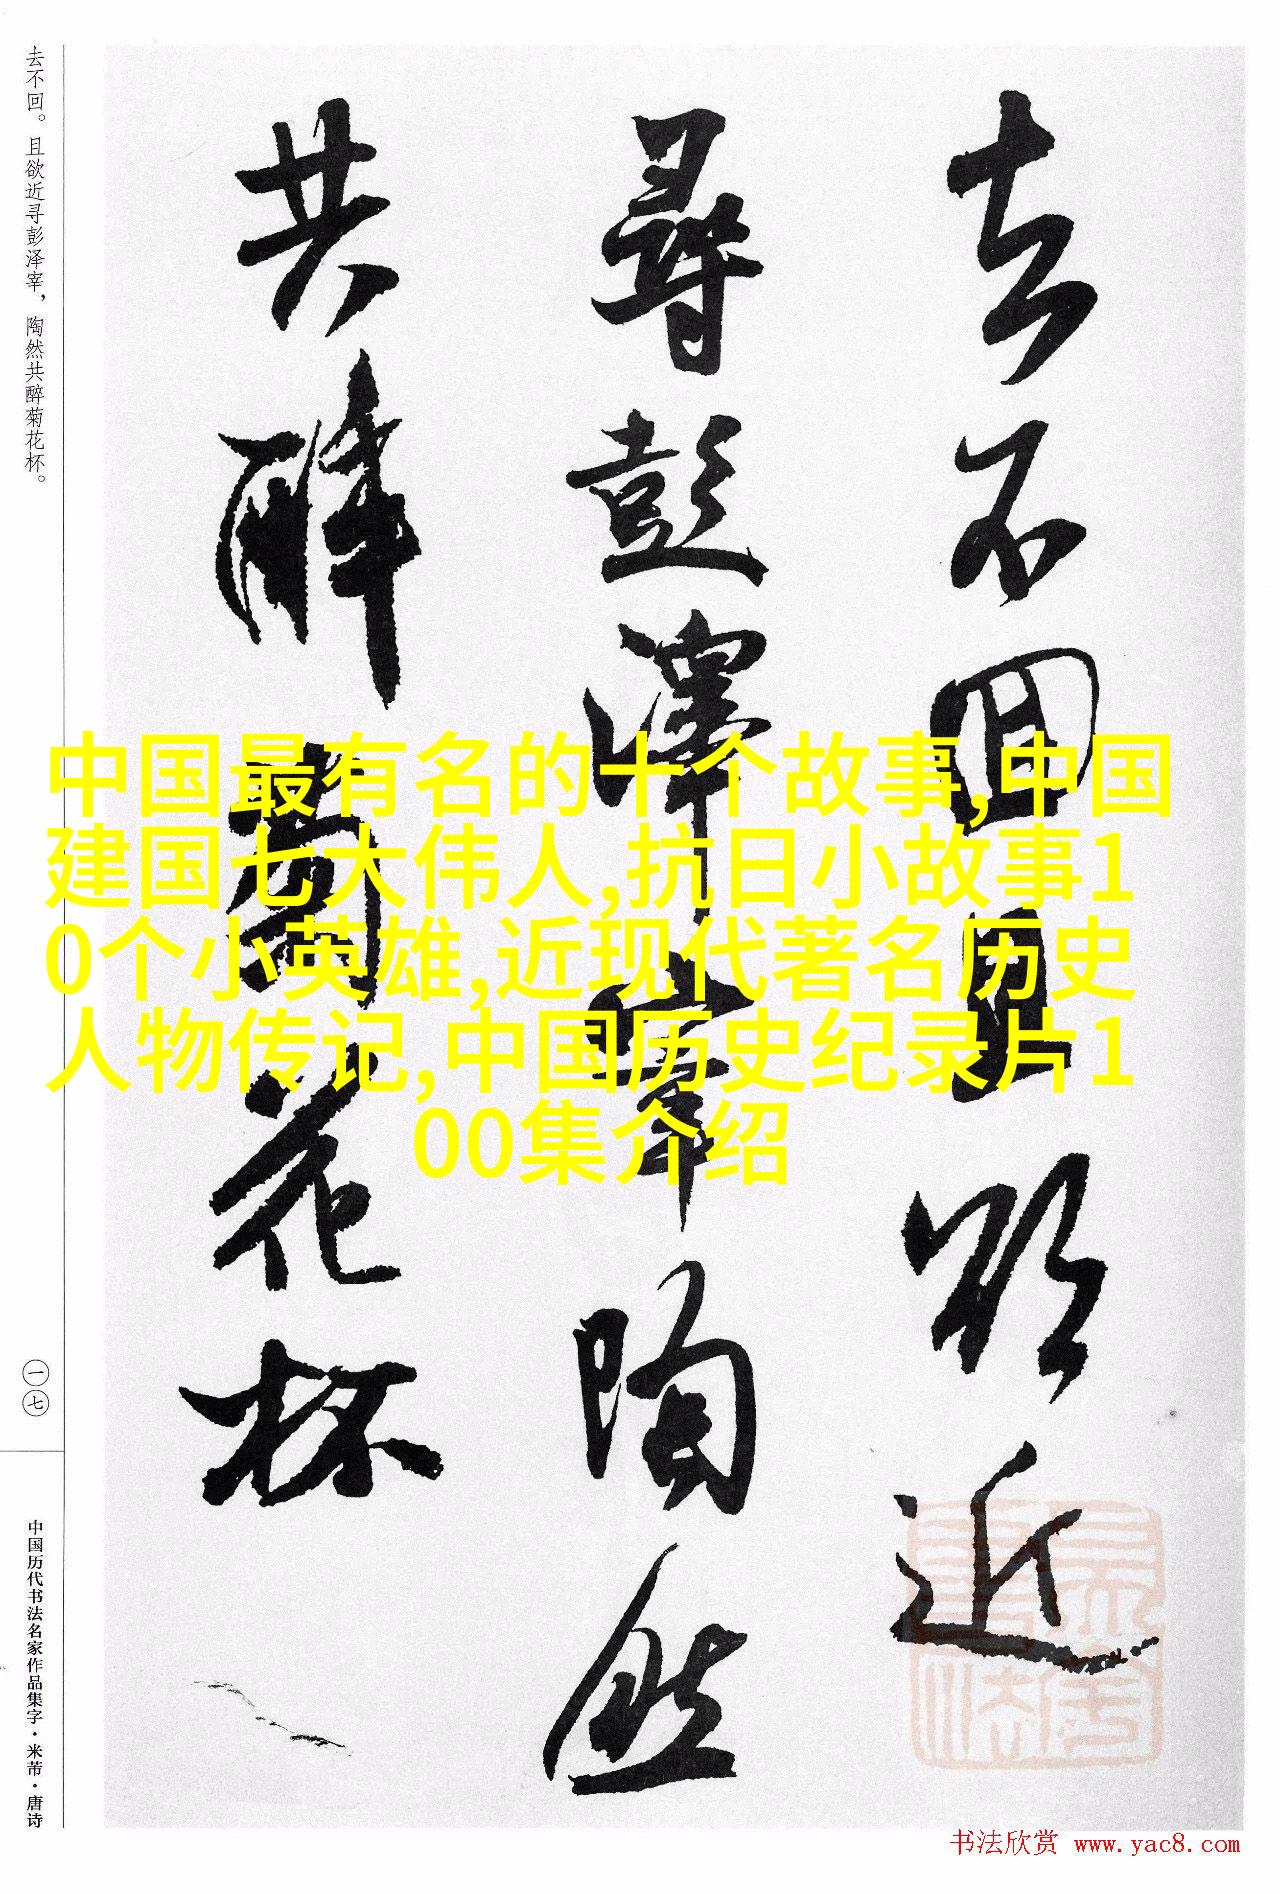 去不回且欲近
尋彭澤宰陶然
共醉菊花杯
去不回。且欲近寻彭泽宰，陶然共醉菊花杯。
一七
中国历代书法名家作品集字·米芾·唐诗
中国最有名的十个故事,中国
建国七大伟人,抗日小故事1
0个小英雄,近现代著名历史
人物传记,中国历史纪录片1
00集介绍
书法欣赏 www.yac8.com